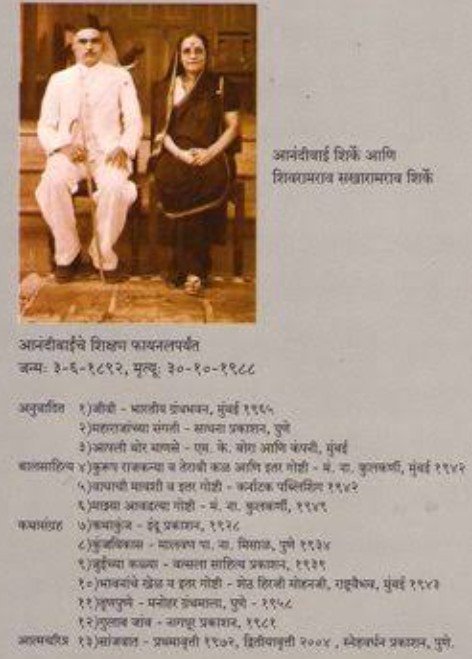 आनंदीबाई शिर्के आणि
शिवरामराव सखारामराव शिर्के
आनंदीबाईंचे शिक्षण फायनलपर्यंत
जन्म: ३-६-१८९२, मृत्यू: ३०-१०-१९८८
अनुवादित १)जीवी - भारतीय ग्रंथभवन, मुंबई १९६५
२)महाराजांच्या संगती - साधना प्रकाशन, पुणे
३)आपली थोर माणसे - एम. के. बोरा आणि कंपनी, मुंबई
बालसाहित्य ४)कुरूप राजकन्या व तेरावी कळ आणि इतर गोष्टी - मं. ना. कुलकर्णी, मुंबई १९४२
५)वाघाची मावशी व इतर गोष्टी - कर्नाटक पब्लिशिंग १९४२
६)माझ्या आवडत्या गोष्टी - मं. ना. कुलकर्णी, १९४९
कथासंग्रह ७)कथाकुंज - इंदू प्रकाशन, १९२८
८)कुंजविकास - मालवण पा. ना. मिसाळ, पुणे १९३४
९)जुईच्या कळ्या - वत्सला साहित्य प्रकाशन, १९३९
१०)भावनांचे खेळ व इतर गोष्टी - शेठ हिरजी मोहनजी, राष्ट्रवैभव, मुंबई १९४३
११)तृणपुष्पे - मनोहर ग्रंथमाला, पुणे - १९५८
१२)गुलाब जांब - नागपूर प्रकाशन, १९८१
आत्मचरित्र १३)सांजवात - प्रथमावृत्ती १९७२, द्वितीयावृत्ती २००४ , स्नेहवर्धन प्रकाशन, पुणे.